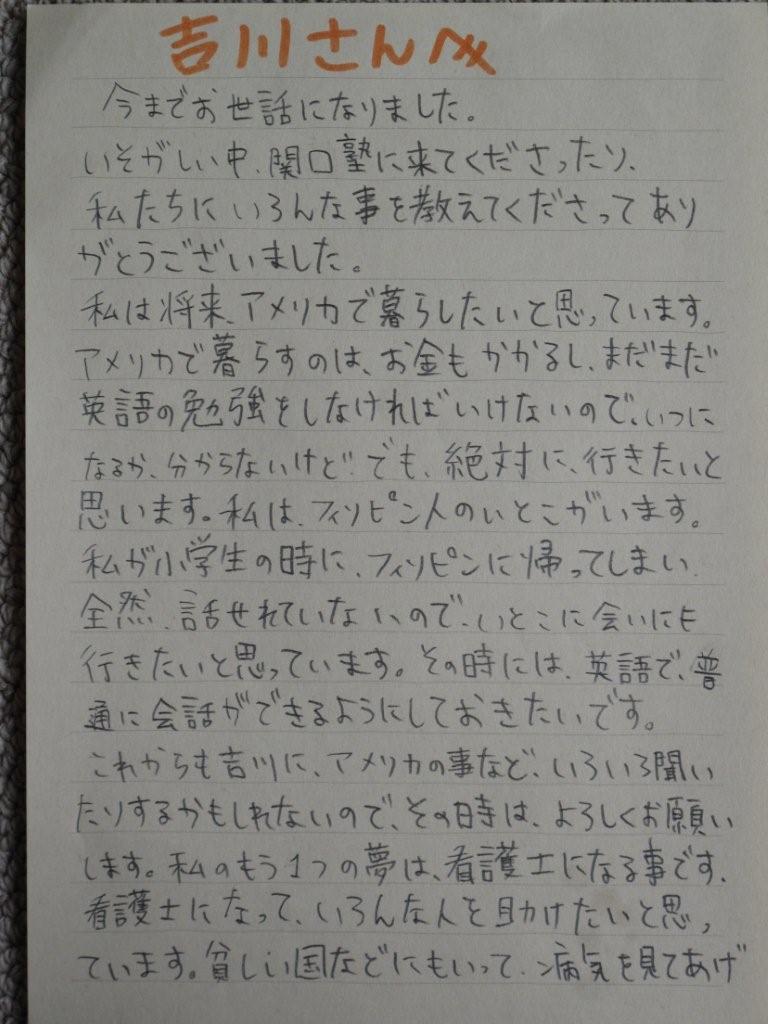 吉川さんへ
今までお世話になりました。
いそがしい中、関口塾に来てくださったり、
私たちにいろんな事を教えてくださってあり
がとうございました。
私は将来、アメリカで暮らしたいと思っています。
アメリカで暮らすのは、お金もかかるし、まだまだ
英語の勉強をしなければいけないので、いつに
なるか、分からないけど…でも、絶対に、行きたいと
思います。私は、フィリピン人のいとこがいます。
私が小学生の時に、フィリピンに帰ってしまい、
全然、話せれていないので、いとこに会いにも
行きたいと思っています。その時には、英語で、普
通に会話ができるようにしておきたいです。
これからも吉川に、アメリカの事など、いろいろ聞い
たりするかもしれないので、その時は、よろしくお願い
します。私のもう1つの夢は、看護士になる事です、
看護士になって、いろんな人を助けたいと思っ
ています。貧しい国などにもいって、病気を見てあげ